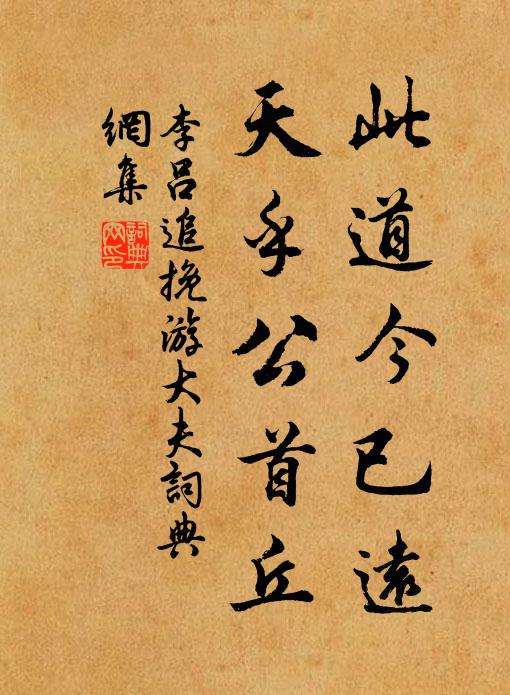 此道今已遠
天乎公首丘
李呂追挽游大夫詞典
網集
詞典
网印